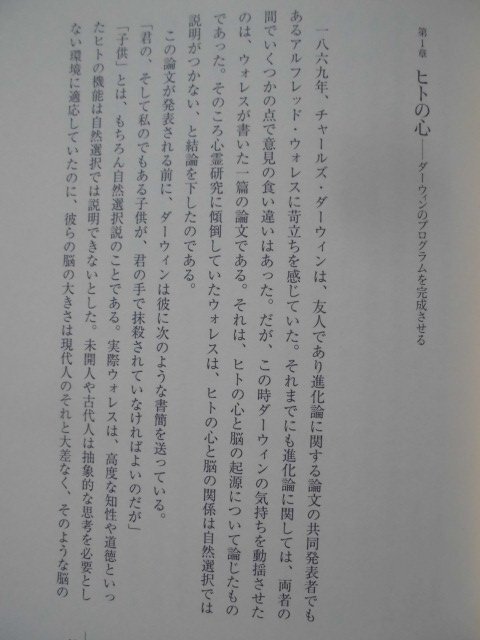 第1章 ヒトの心――ダーウィンのプログラムを完成させる
一八六九年、チャールズ・ダーウィンは、友人であり進化論に関する論文の共同発表者でも
あるアルフレッド・ウォレスに苛立ちを感じていた。それまでにも進化論に関しては、両者の
間でいくつかの点で意見の食い違いはあった。だが、この時ダーウィンの気持ちを動揺させた
のは、ウォレスが書いた一篇の論文である。それは、ヒトの心と脳の起源について論じたもの
であった。そのころ心霊研究に傾倒していたウォレスは、ヒトの心と脳の関係は自然選択では
説明がつかない、と結論を下したのである。
この論文が発表される前に、ダーウィンは彼に次のような書簡を送っている。
「君の、そして私のでもある子供が、君の手で抹殺されていなければよいのだが」
「子供」とは、もちろん自然選択説のことである。実際ウォレスは、高度な知性や道徳といっ
たヒトの機能は自然選択では説明できないとした。未開人や古代人は抽象的な思考を必要とし
ない環境に適応していたのに、彼らの脳の大きさは現代人のそれと大差なく、そのような脳の